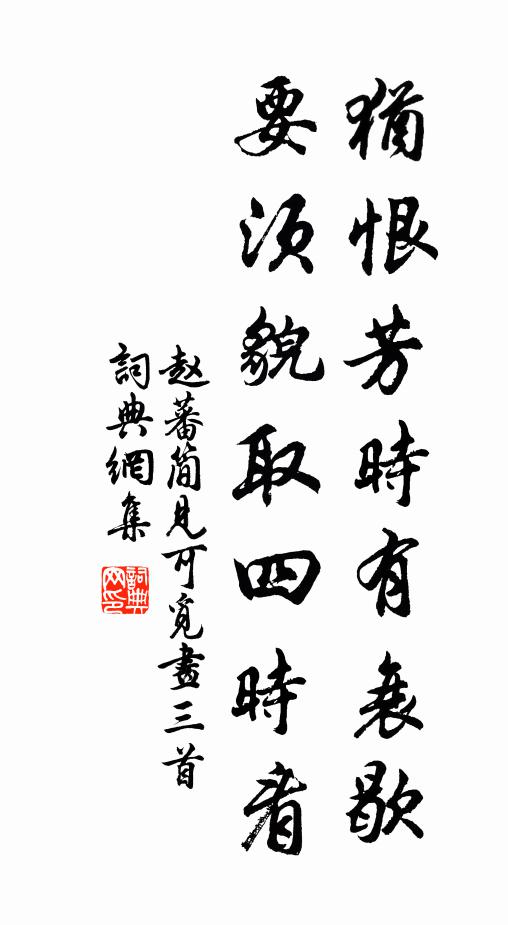 猶恨芳時有衰歇
要須貌取四時看
赵蕃简見可覓畫三首
詞典網集
詞典
网印